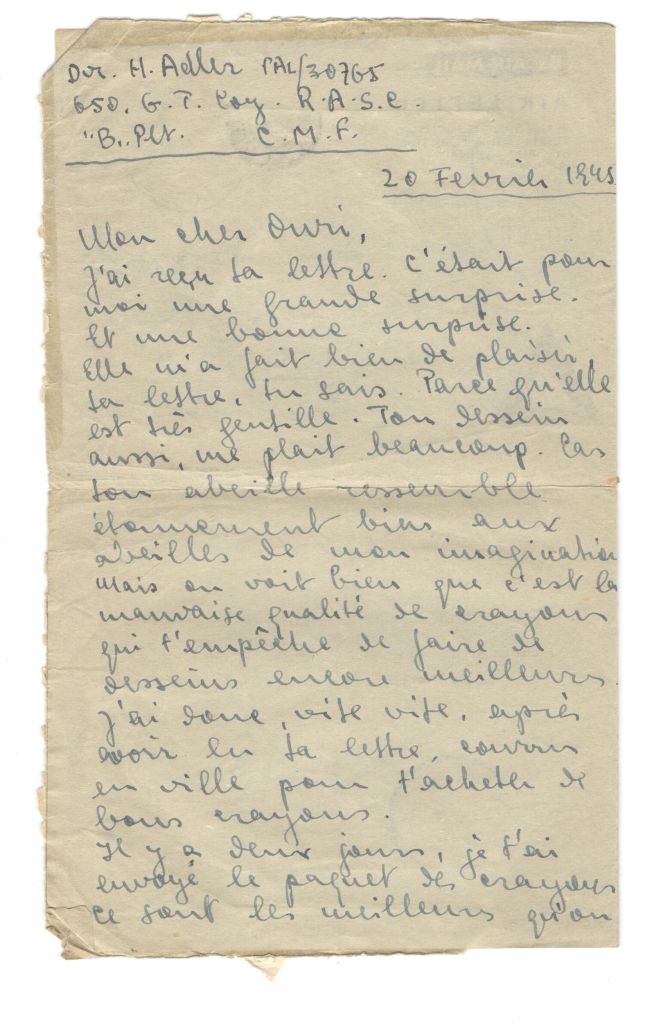 Dvr. H. Adler PAL/30765
650. G. T. Coy. R.A.S.C.
"B" Plt. C.M.F.
20 Fevrier 1945
Mon cher Ouri,
J'ai reçu ta lettre. C'était pour
moi une grande surprise.
Et une bonne surprise.
Elle m'a fait bien de plaisir,
ta lettre, tu sais. Parce qu'elle
est très gentille. Ton dessein
aussi, me plait beaucoup. Car
ton abeille ressemble
étonnement bien aux
abeilles de mon imagination
Mais on voit bien que c'est la
mauvaise qualité de crayons
qui t'empêche de faire de
desseins encore meilleurs.
J'ai donc, vite vite, après
avoir lu ta lettre, couru
en ville pour t'acheter de
bons crayons.
Il y a deux jours, je t'ai
envoyé le paquet des crayons
ce sont les meilleurs qu'on